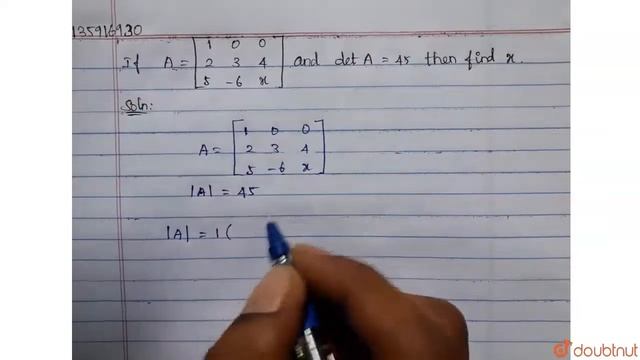 1359169.30
If A = [1 0 0
2 3 4
5 -6 x] and det A = 45 then find x.
Soln:
A = [1 0 0
2 3 4
5 -6 x]
|A| = 45
|A| = 1(
doubtnut